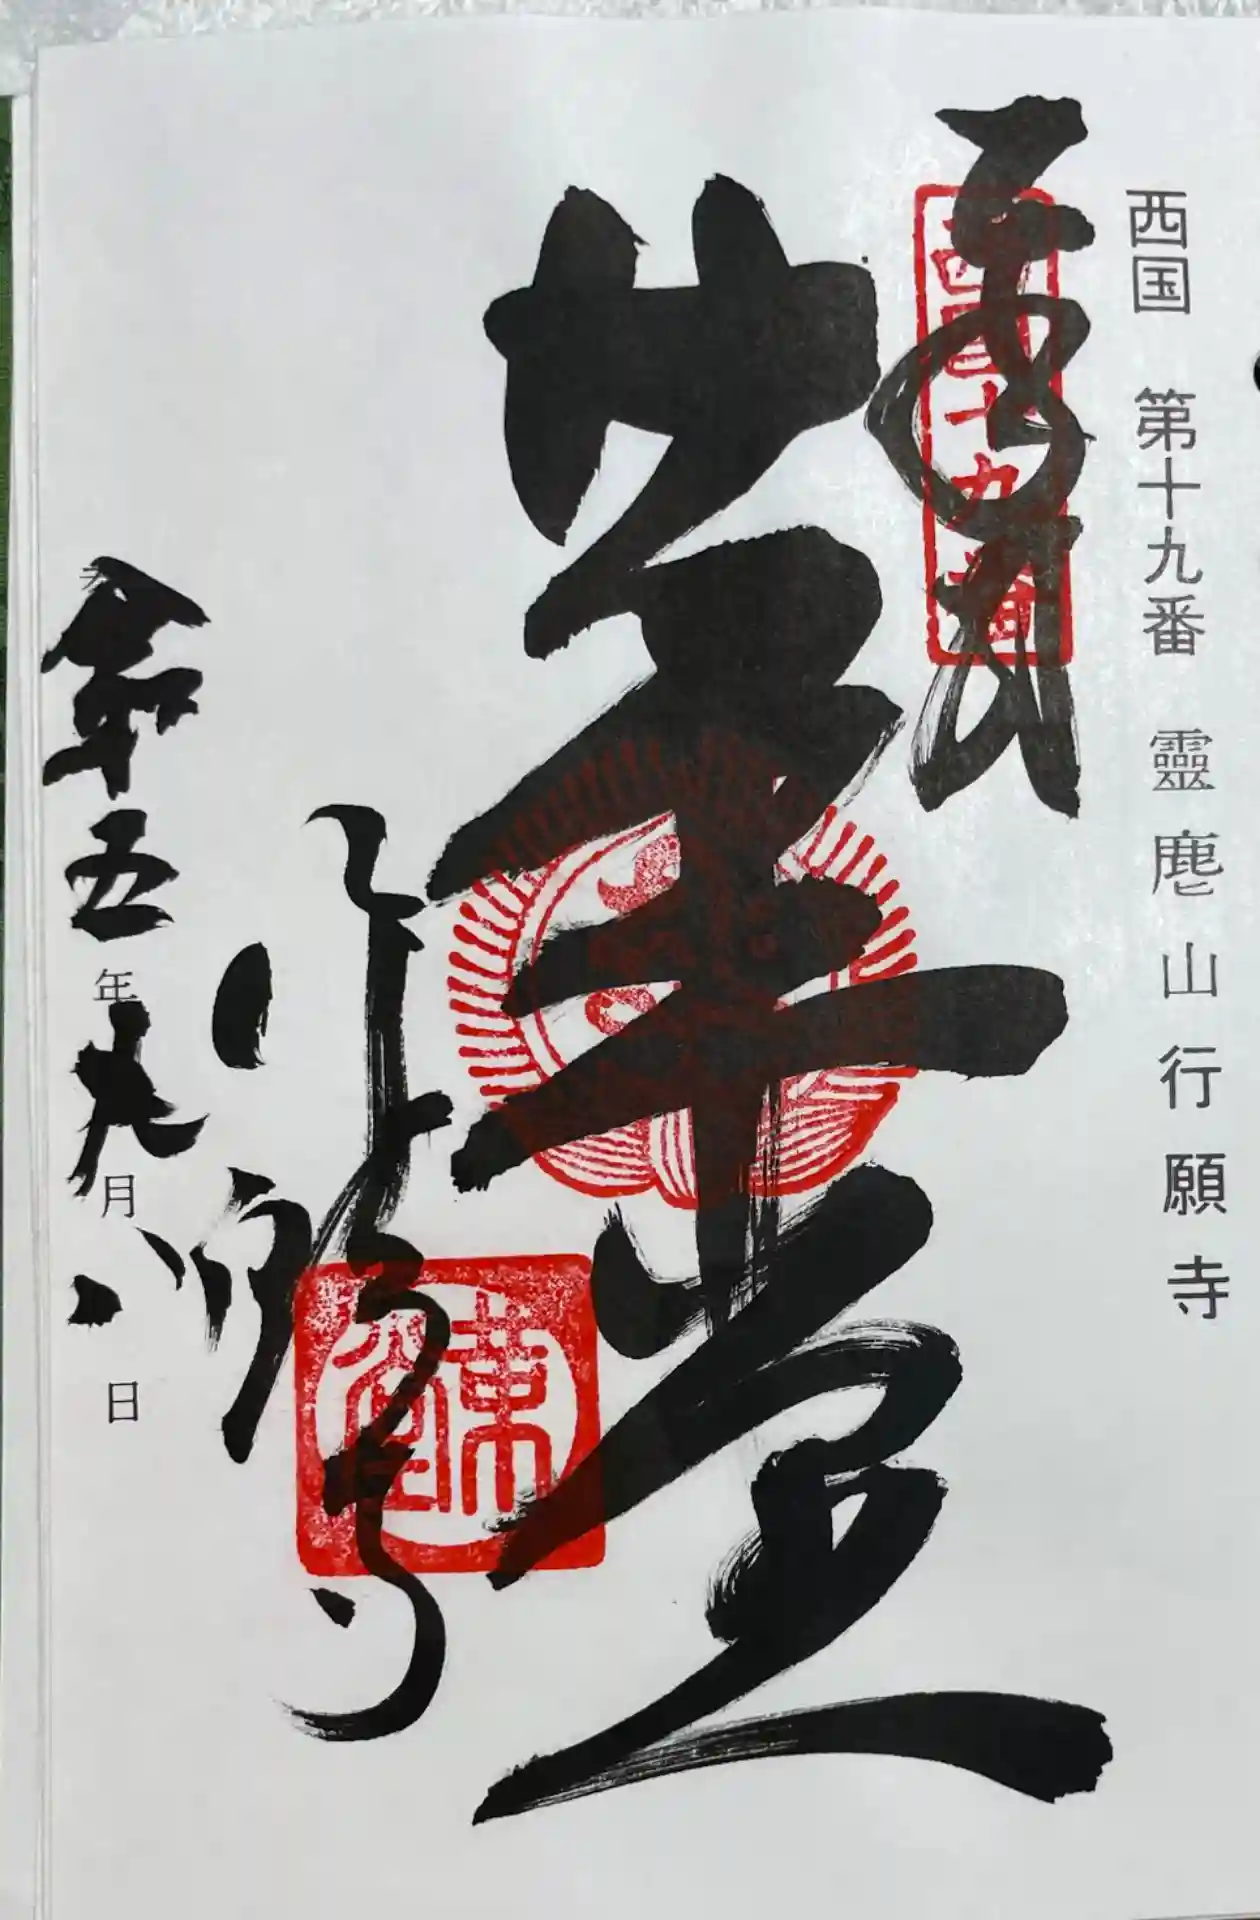 西国 第十九番 靈麀山行願寺
奉拝
西国十九番
革堂
革堂
行願寺
令和五年九月八日